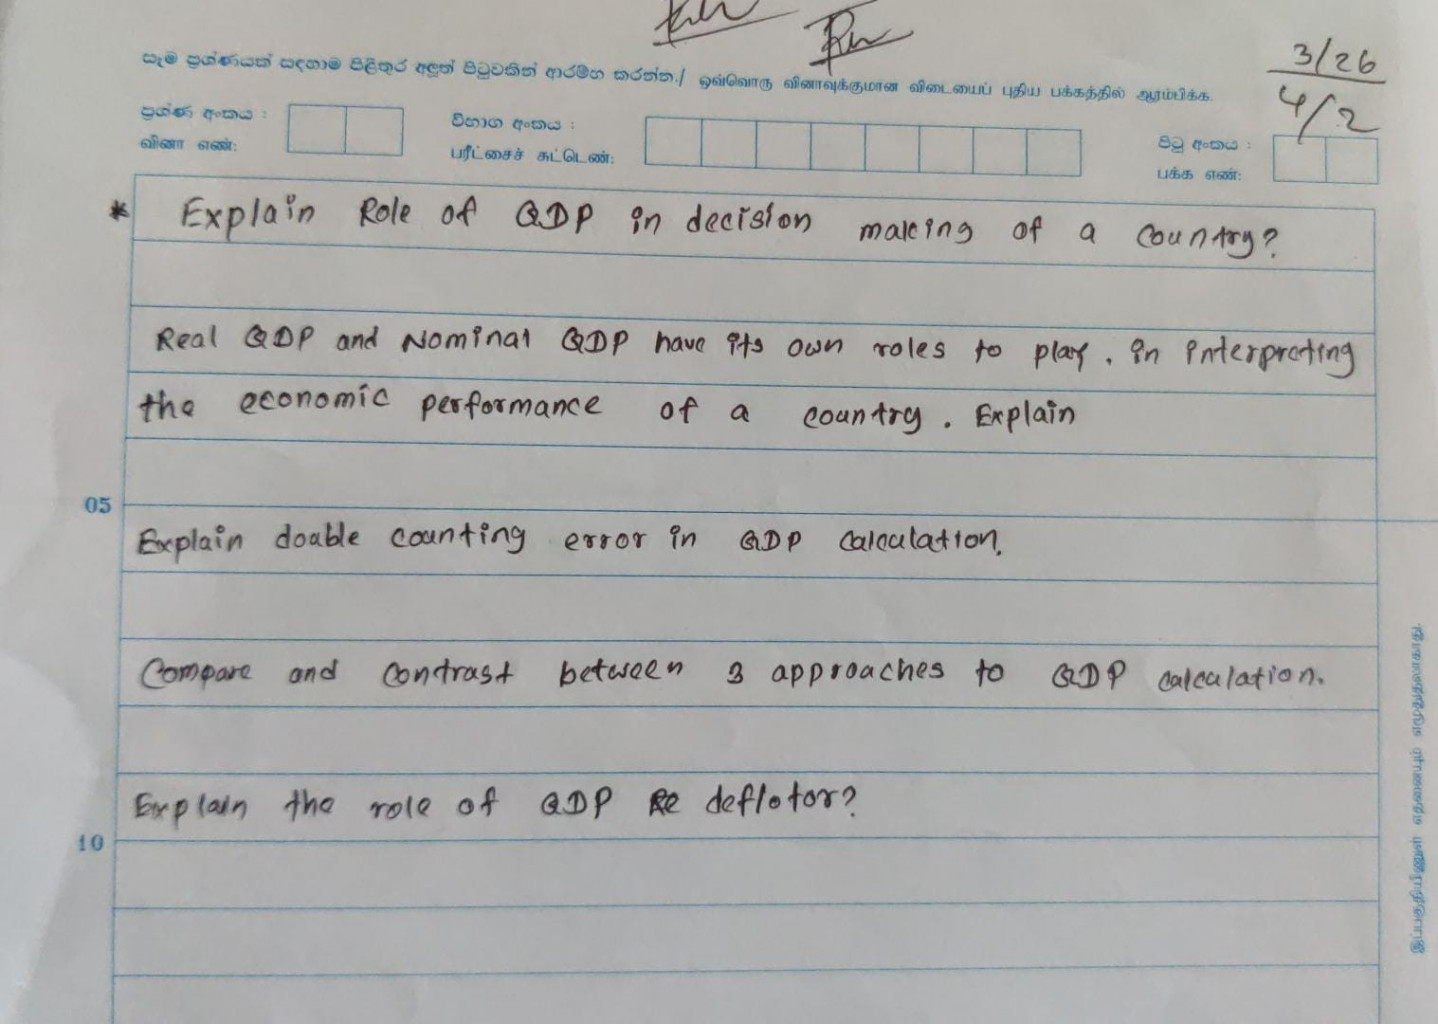 3/26
4/2
සෑම ප්‍රශ්ණයක් සඳහාම පිළිතුර අලුත් පිටුවකින් ආරම්භ කරන්න./ ஒவ்வொரு வினாவுக்குமான விடையைப் புதிய பக்கத்தில் ஆரம்பிக்க.
ප්‍රශ්ණ අංකය :
வினா எண்:
විභාග අංකය :
பரீட்சைச் சுட்டெண்:
පිටු අංකය :
பக்க எண்:
* Explain Role of GDP in decision making of a country?
Real GDP and Nominal GDP have its own roles to play. in interpreting
the economic performance of a country. Explain
05
Explain double counting error in GDP calculation.
Compare and contrast between 3 approaches to GDP calculation.
Explain the role of GDP deflator?
10
இப்பகுதியினுள் எதனையும் எழுதுதலாகாது.